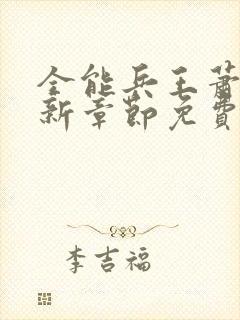 全能兵王萧
新章节免费
李吉福